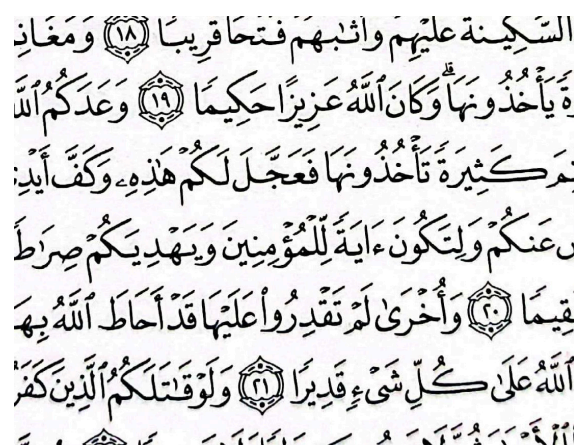 السَّكِينَةَ عَلَيْهِمْ وَأَثَٰبَهُمْ فَتْحًا قَرِيبًا ١٨
يَأْخُذُونَهَا ۗ وَكَانَ ٱللَّهُ عَزِيزًا حَكِيمًا ١٩ وَعَدَكُمُ
كَثِيرَةً تَأْخُذُونَهَا فَعَجَّلَ لَكُمْ هَٰذِهِۦ وَكَفَّ
عَنكُمْ وَلِتَكُونَ ءَايَةً لِّلْمُؤْمِنِينَ وَيَهْدِيَكُمْ
٢٠ وَأُخْرَىٰ لَمْ تَقْدِرُوا۟ عَلَيْهَا قَدْ أَحَاطَ ٱللَّهُ
ٱللَّهُ عَلَىٰ كُلِّ شَىْءٍ قَدِيرًا ٢١ وَلَوْ قَٰتَلَكُمُ ٱلَّذِينَ